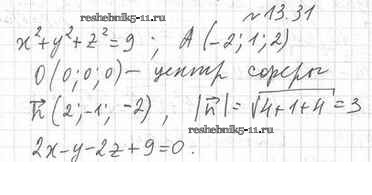 reshebnik5-11.ru
№13.31
x²+y²+z²=9 ; A(-2;1;2)
O(0;0;0) — центр сферы
n⃗(2;-1;-2), |n⃗|=√4+1+4=3
reshebnik5-11.ru
2x-y-2z+9=0.